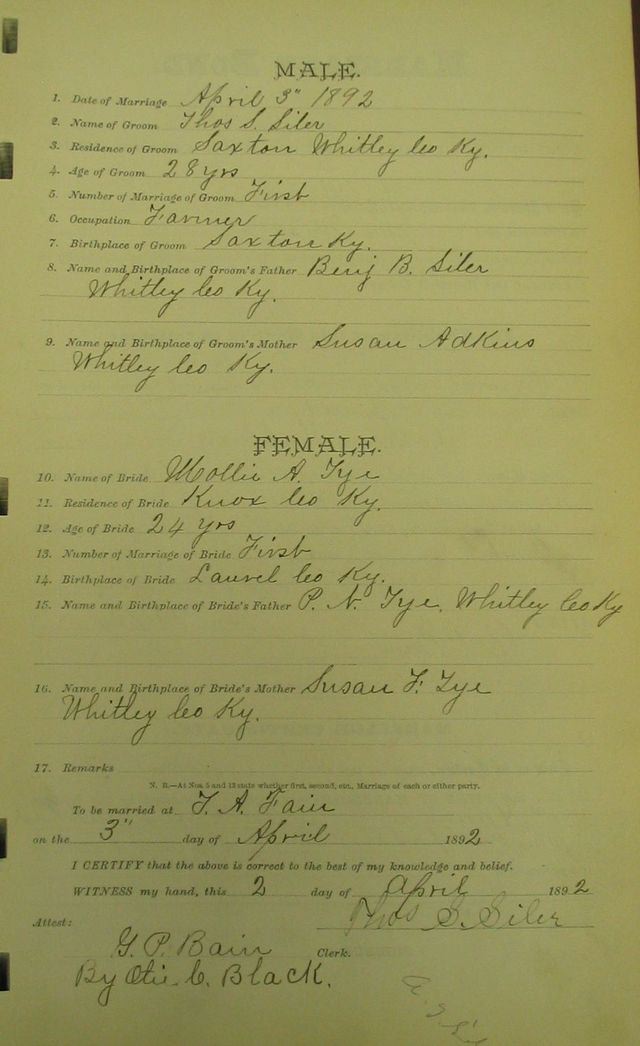 MALE.
1. Date of Marriage April 3" 1892
2. Name of Groom Thos S. Siler
3. Residence of Groom Saxton Whitley Co Ky.
4. Age of Groom 28 yrs
5. Number of Marriage of Groom First
6. Occupation Farmer
7. Birthplace of Groom Saxton Ky.
8. Name and Birthplace of Groom's Father Benj B. Siler
Whitley Co Ky.
9. Name and Birthplace of Groom's Mother Susan Adkins
Whitley Co Ky.
FEMALE.
10. Name of Bride Mollie A. Tye
11. Residence of Bride Knox Co Ky.
12. Age of Bride 24 yrs
13. Number of Marriage of Bride First
14. Birthplace of Bride Laurel Co Ky.
15. Name and Birthplace of Bride's Father P. N. Tye, Whitley Co Ky
16. Name and Birthplace of Bride's Mother Susan F. Tye
Whitley Co Ky.
17. Remarks
N. B.—At Nos. 5 and 13 state whether first, second, etc., Marriage of each or either party.
To be married at T. A. Fain
on the 3" day of April 1892
I CERTIFY that the above is correct to the best of my knowledge and belief.
WITNESS my hand, this 2 day of April 1892
Thos S. Siler
Attest:
G. P. Bain Clerk.
By Otis C. Black.